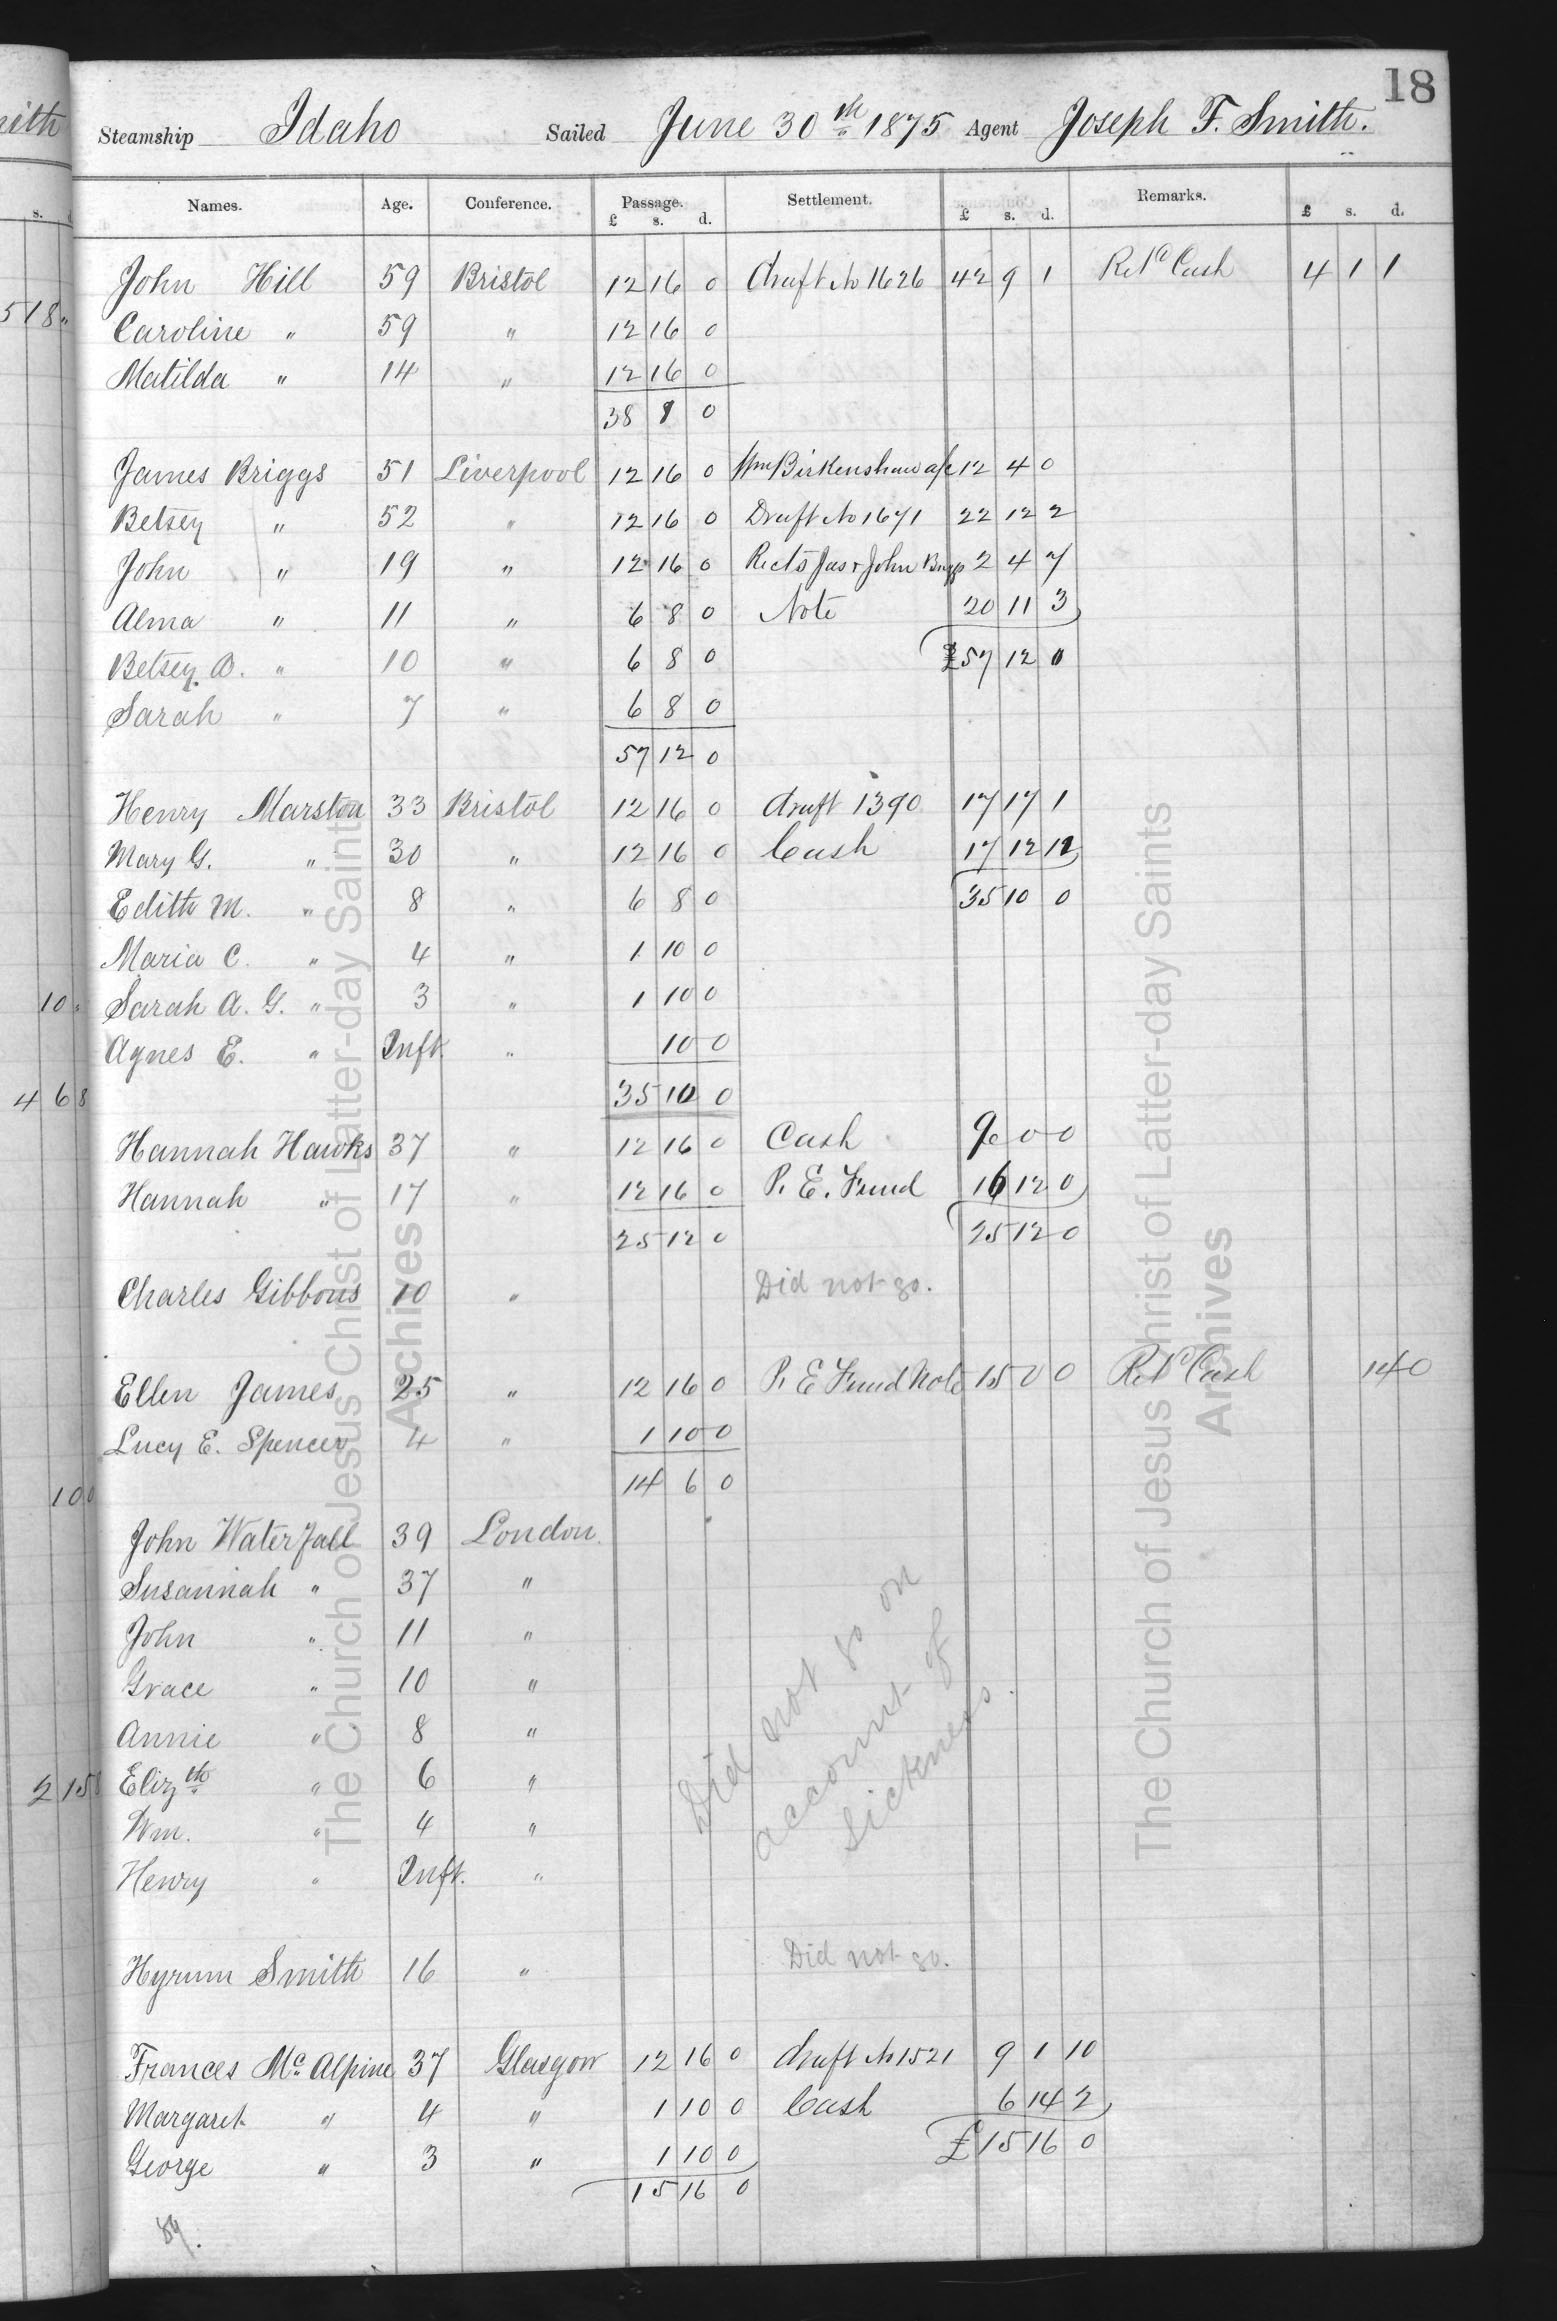 18
Steamship Idaho Sailed June 30th 1875 Agent Joseph F. Smith.
Names. Age. Conference. Passage. £ s. d. Settlement. £ s. d. Remarks. £ s. d.
John Hill 59 Bristol 12 16 0 draft No 1626 42 9 1 Retd Cash 4 1 1
Caroline " 59 " 12 16 0
Matilda " 14 " 12 16 0
38 8 0
James Briggs 51 Liverpool 12 16 0 Wm Birkenshaw a/c 12 4 0
Betsey " 52 " 12 16 0 Draft No 1671 22 12 2
John " 19 " 12 16 0 Rects Jas & John Briggs 2 4 7
Alma " 11 " 6 8 0 Note 20 11 3
Betsey B. " 10 " 6 8 0 £57 12 0
Sarah " 7 " 6 8 0
57 12 0
Henry Marston 33 Bristol 12 16 0 draft 1390 17 17 1
Mary G. " 30 " 12 16 0 Cash 17 12 11
Edith M. " 8 " 6 8 0 35 10 0
Maria C. " 4 " 1 10 0
Sarah A. G. " 3 " 1 10 0
Agnes E. " Inft " 10 0
35 10 0
Hannah Hawks 37 " 12 16 0 Cash 9 0 0
Hannah " 17 " 12 16 0 P. E. Fund 16 12 0
25 12 0 25 12 0
Charles Gibbons 10 " Did not go.
Ellen James 25 " 12 16 0 P. E Fund Note 15 0 0 Retd Cash 14 0
Lucy E. Spencer 4 " 1 10 0
14 6 0
John Waterfall 39 London
Susannah " 37 "
John " 11 "
Grace " 10 "
Annie " 8 "
Elizth " 6 "
Wm. " 4 "
Henry " Inft. "
Did not go on
account of
Sickness.
Hyrum Smith 16 " Did not go.
Frances Mc Alpine 37 Glasgow 12 16 0 draft No 1521 9 1 10
Margaret " 4 " 1 10 0 Cash 6 14 2
George " 3 " 1 10 0 £15 16 0
15 16 0
The Church of Jesus Christ of Latter-day Saints
Archives
The Church of Jesus Christ of Latter-day Saints
Archives